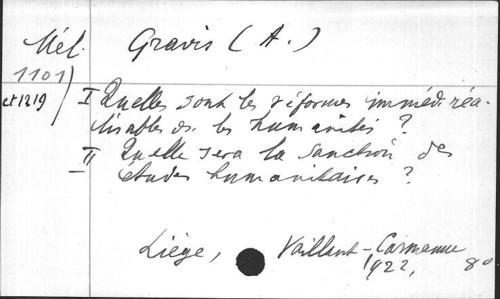 Mél. Gravis (A.)
1101
et 1219
I Quelles sont les réformes immédi. réa-
lisables ds. les humanités ?
II Quelle sera la sanction des
études humanitaires ?
Liège, Vaillant-Carmanne
1922, 8°.